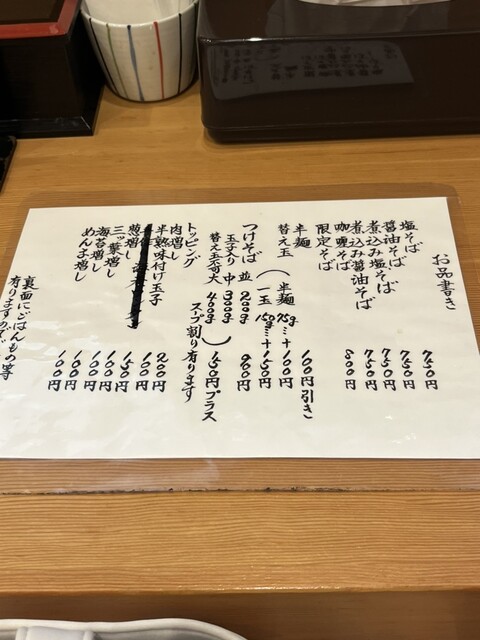 お品書き
塩そば 750円
醤油そば 750円
煮込み塩そば 750円
煮込み醤油そば 750円
咖喱そば 800円
限定そば
半麺 100円引き
替え玉(半麺75g…+100円
一玉150g…+150円
つけそば 並200g 900円
玉子入り 中300g
替え玉不可 大400g)150円プラス
スープ割り有ります
トッピング
肉増し 200円
半熟味付け玉子 100円
150円
葱増し 100円
三ッ葉増し 100円
海苔増し 100円
めんま増し 100円
裏面にごはんもの等
有りますので